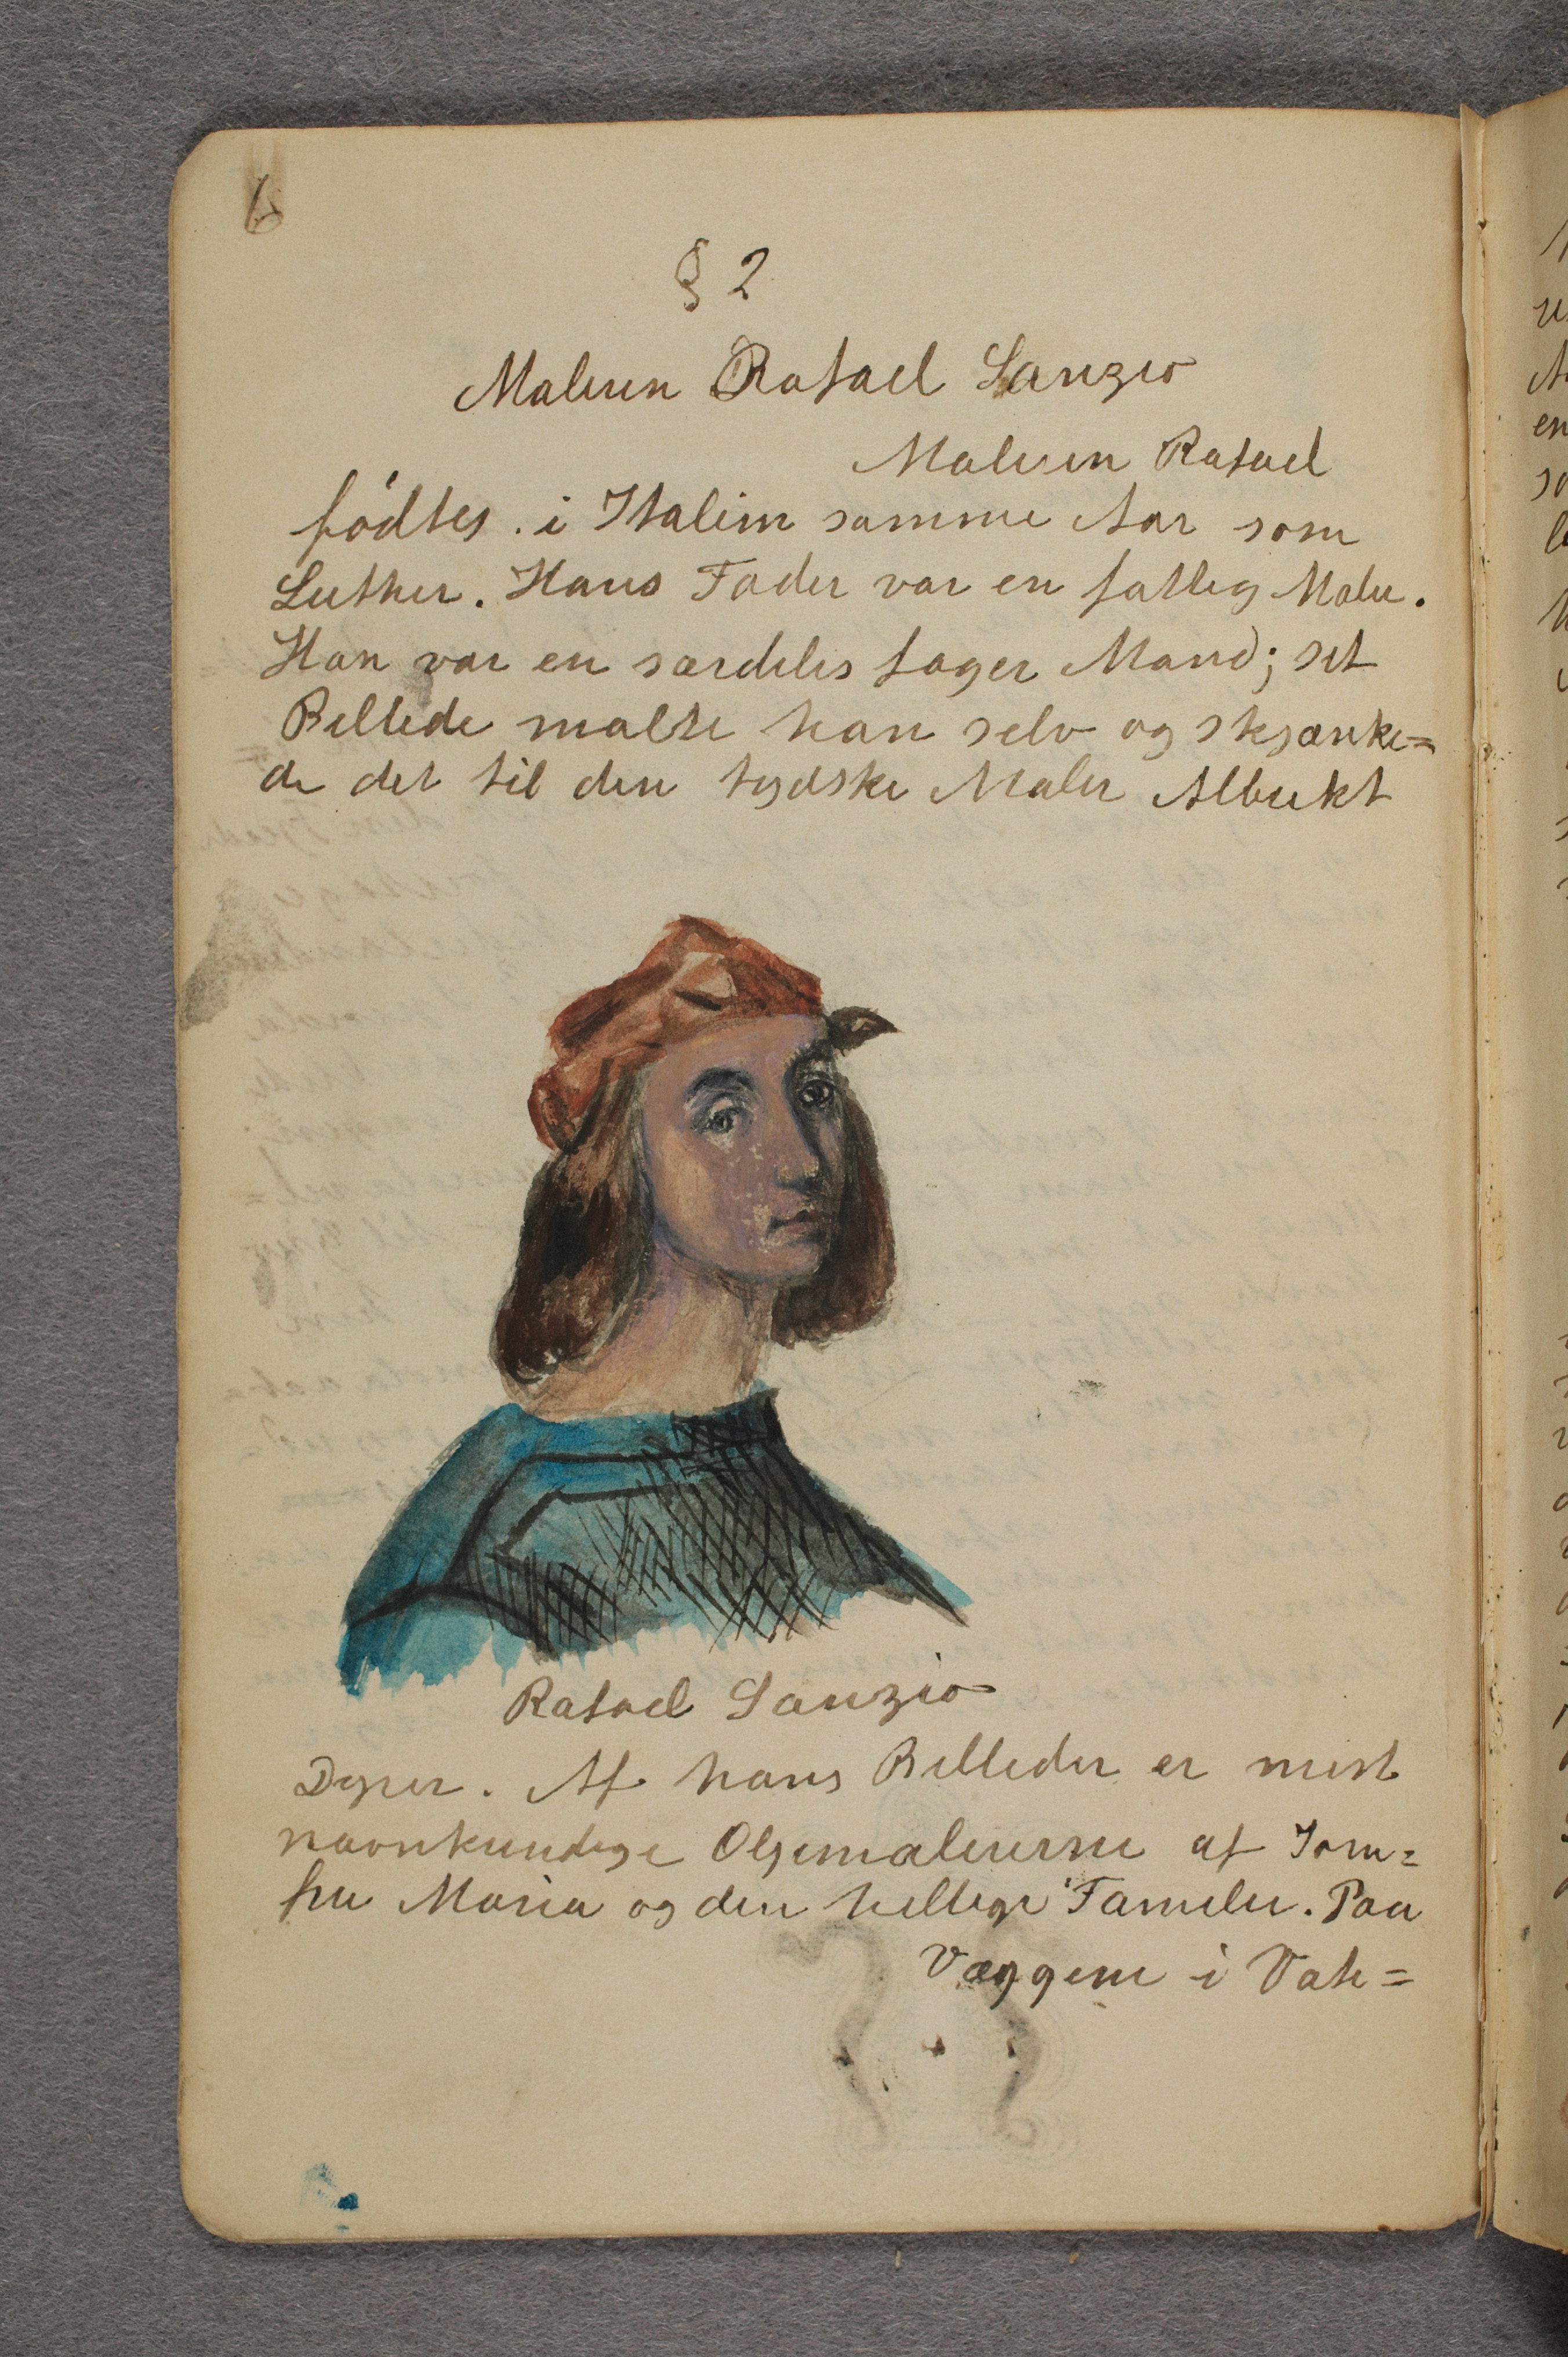 6
§ 2
Maleren Rafael Sanzio
Maleren Rafael
födtes . i Italien samme Aar som
Luther. Hans Fader var en fattig Maler.
Han var en særdeles fager Mand; sit
Billede malte han selv og skjænke=
de det til den tydske Maler Albrekt
Rafael Sanzio
Dyrer. Af hans Billeder er mest
navnkundige Oljemalererne af Jom=
fru Maria og den hellige Familie. Paa
Væggene i Vati=